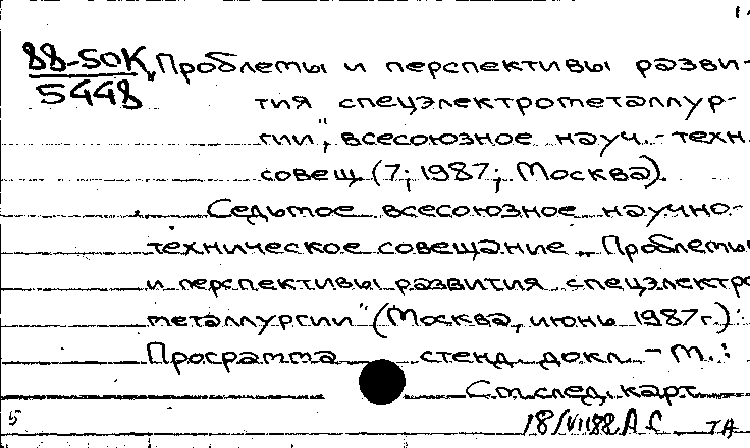 88-50К „Проблемы и перспективы разви-
5448 тия спецэлектрометаллур-
гии", всесоюзное науч.-техн.
совещ. (7; 1987; Москва).
Седьмое всесоюзное научно-
техническое совещание „Проблемы
и перспективы развития спецэлектро
металлургии" (Москва, июнь 1987г.):
Программа стенд. докл. – М.:
См. след. карт.
18/VII88 А.С. ТА
5